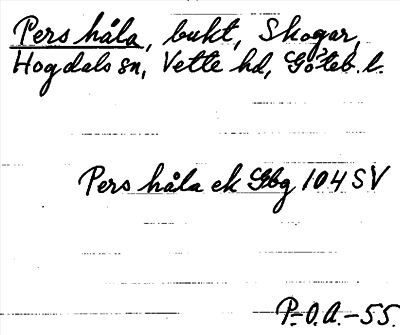 Pers håla, bukt, Skogar,
Hogdals sn, Vette hd, Göteb. l.
Pers håla ek Gbg 104 SV
P.-O.A.-55.